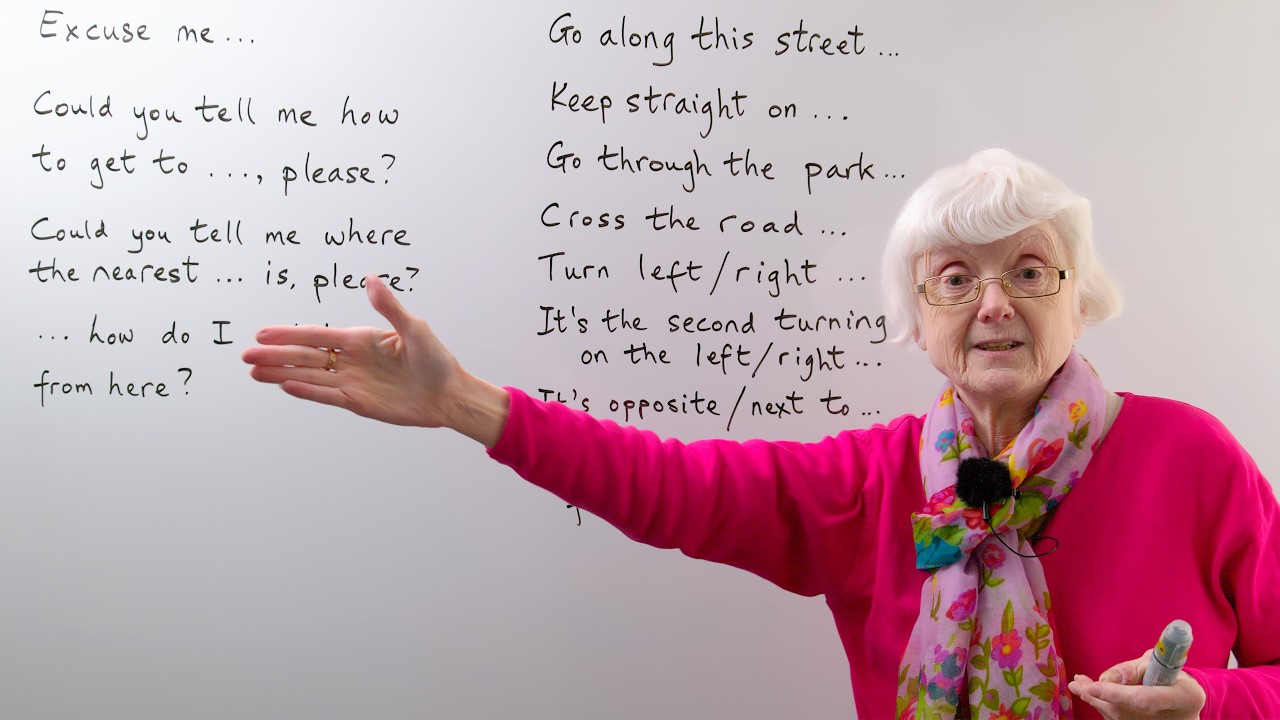 Excuse me...
Could you tell me how
to get to ..., please?
Could you tell me where
the nearest ... is, please?
... how do I
from here?
Go along this street ...
Keep straight on ...
Go through the park...
Cross the road ...
Turn left/right ...
It's the second turning
on the left/right ...
It's opposite/next to ...